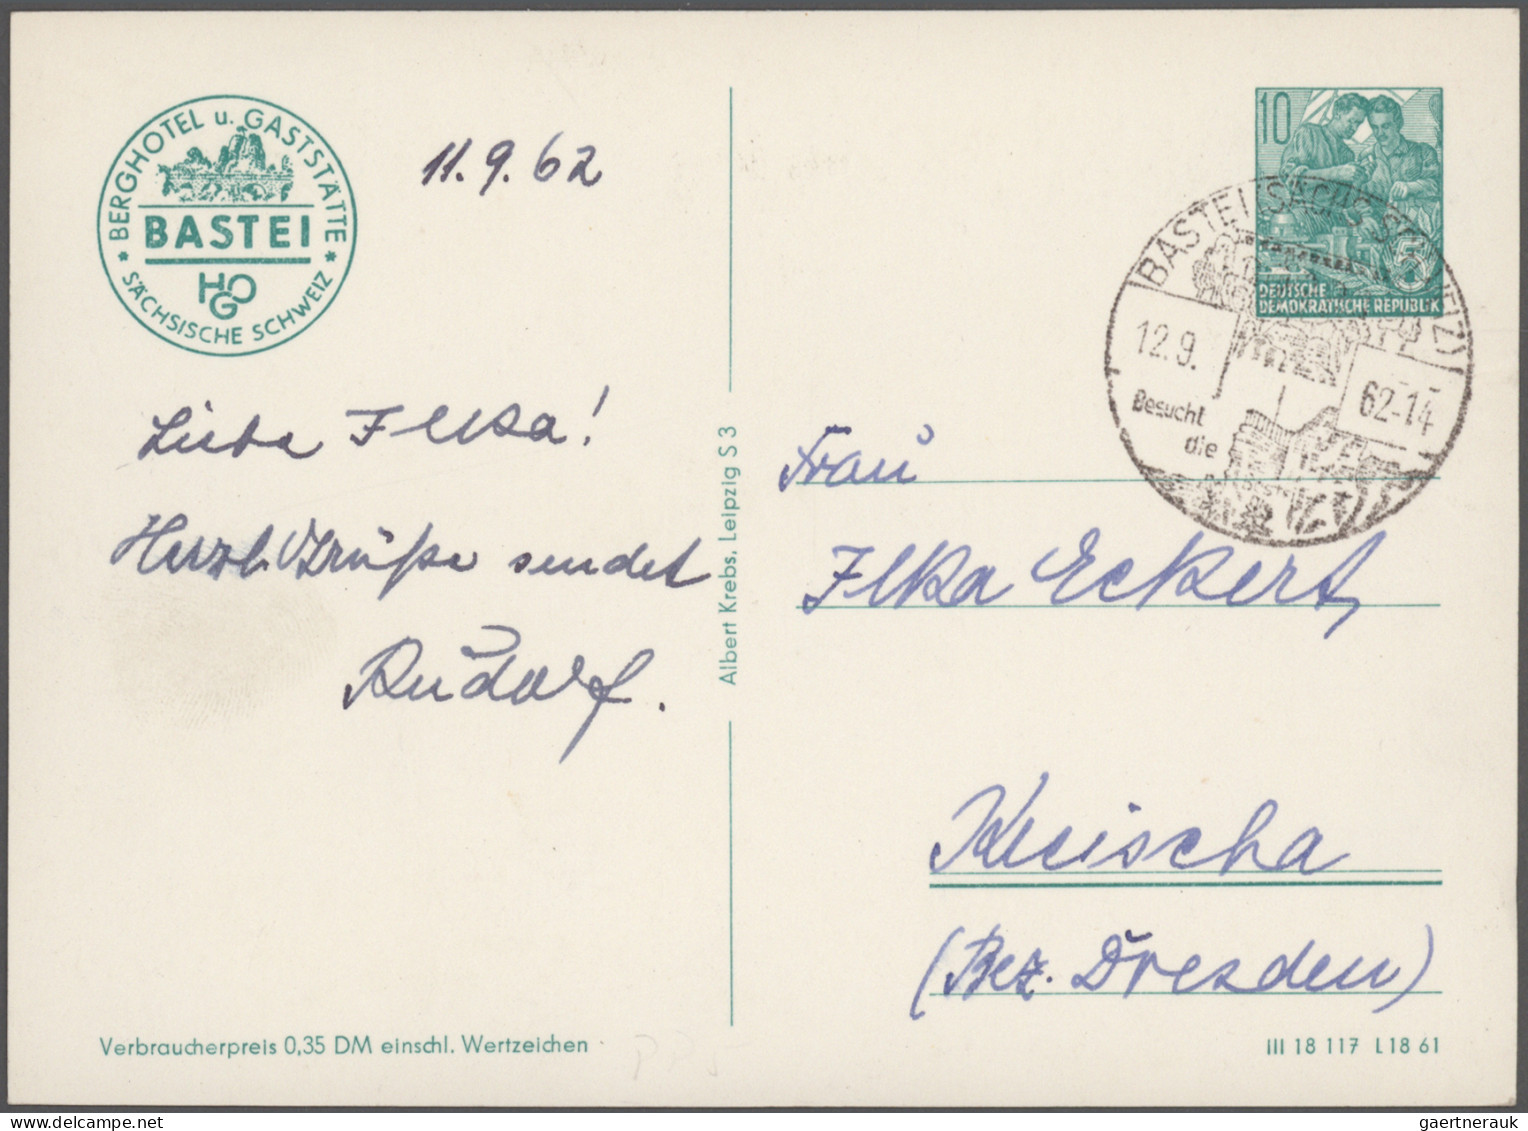 BERGHOTEL u. GASTSTÄTTE
BASTEI
HOG
* SÄCHSISCHE SCHWEIZ *
11.9.62
Liebe Ilka!
Herzl. Grüße sendet
Rudolf.
Albert Krebs, Leipzig S 3
10
5
DEUTSCHE
DEMOKRATISCHE REPUBLIK
BASTEI (SÄCHS SCHWEIZ)
12.9.
62-14
Besucht
die
Frau
Ilka Eckert
Kreischa
(Bez. Dresden)
Verbraucherpreis 0,35 DM einschl. Wertzeichen
III 18 117 L18 61
gaertnerauk